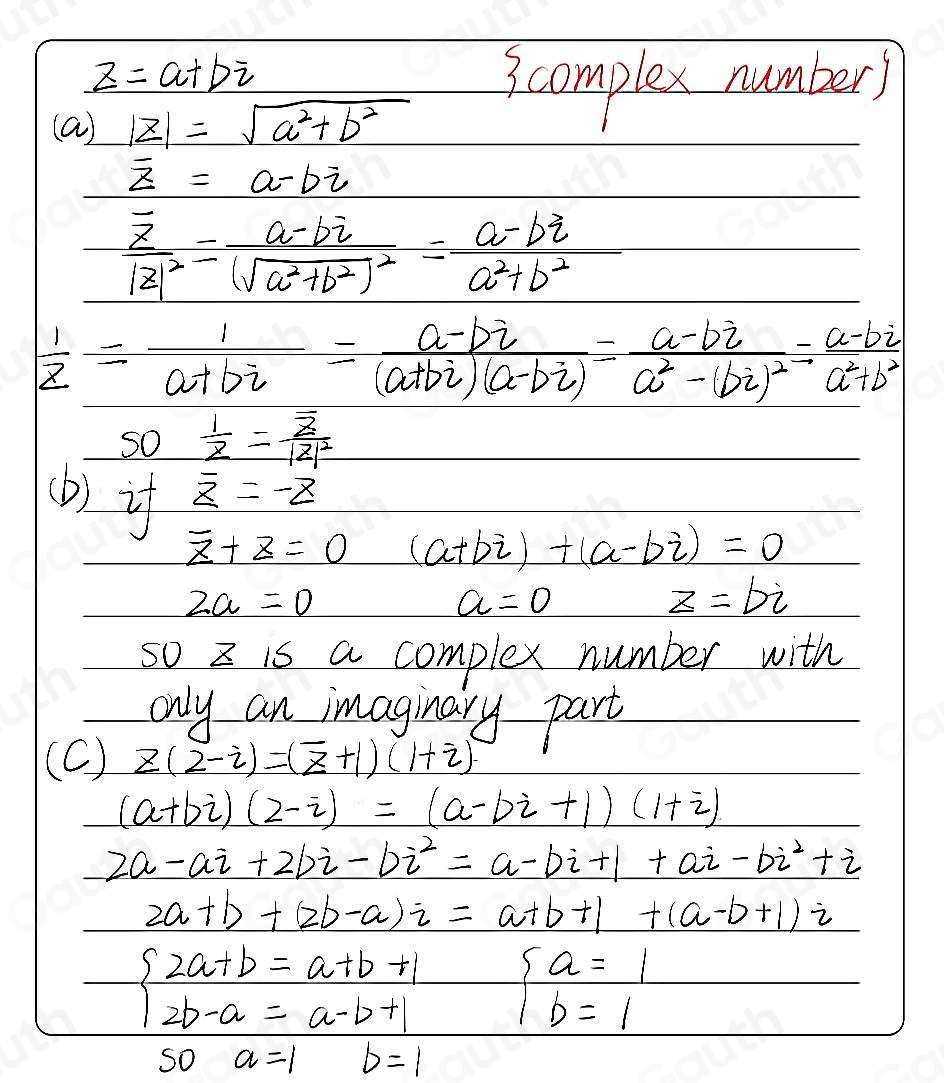 z = a+bi {complex number}
(a) |z| = √(a²+b²)
z̄ = a-bi
z̄/|z|² = (a-bi)/(√(a²+b²))² = (a-bi)/(a²+b²)
1/z = 1/(a+bi) = (a-bi)/((a+bi)(a-bi)) = (a-bi)/(a²-(bi)²) = (a-bi)/(a²+b²)
so 1/z = z̄/|z|²
(b) if z̄ = -z
z̄+z=0 (a+bi)+(a-bi)=0
2a=0 a=0 z=bi
so z is a complex number with
only an imaginary part
(C) z(2-i)=(z̄+1)(1+i).
(a+bi)(2-i) = (a-bi+1)(1+i)
2a-ai+2bi-bi² = a-bi+1+ai-bi²+i
2a+b+(2b-a)i = a+b+1+(a-b+1)i
{2a+b=a+b+1 {a=1
2b-a=a-b+1 b=1
so a=1 b=1
Gauth